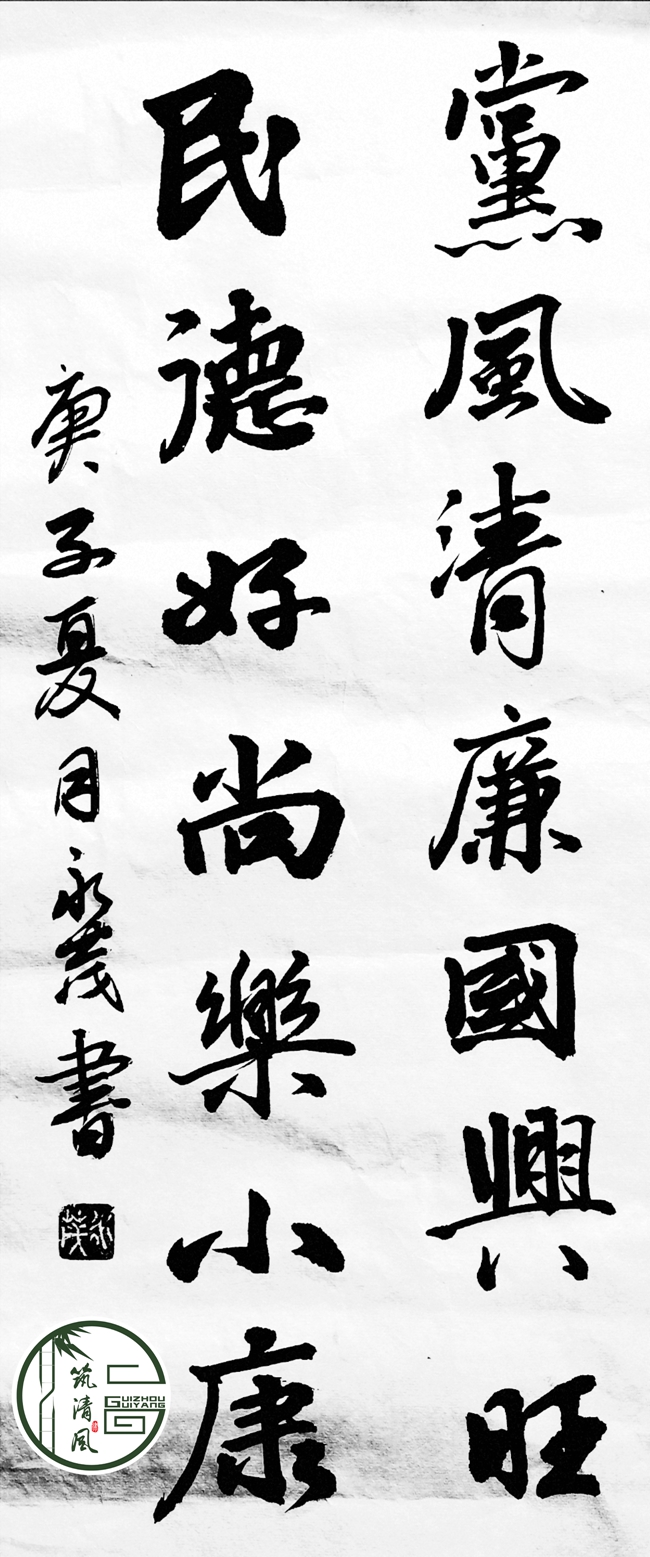 黨風清廉國興旺
民德好尚樂小康
庚子夏月永茂書
永茂
筑清风
GUIZHOU
GUIYANG